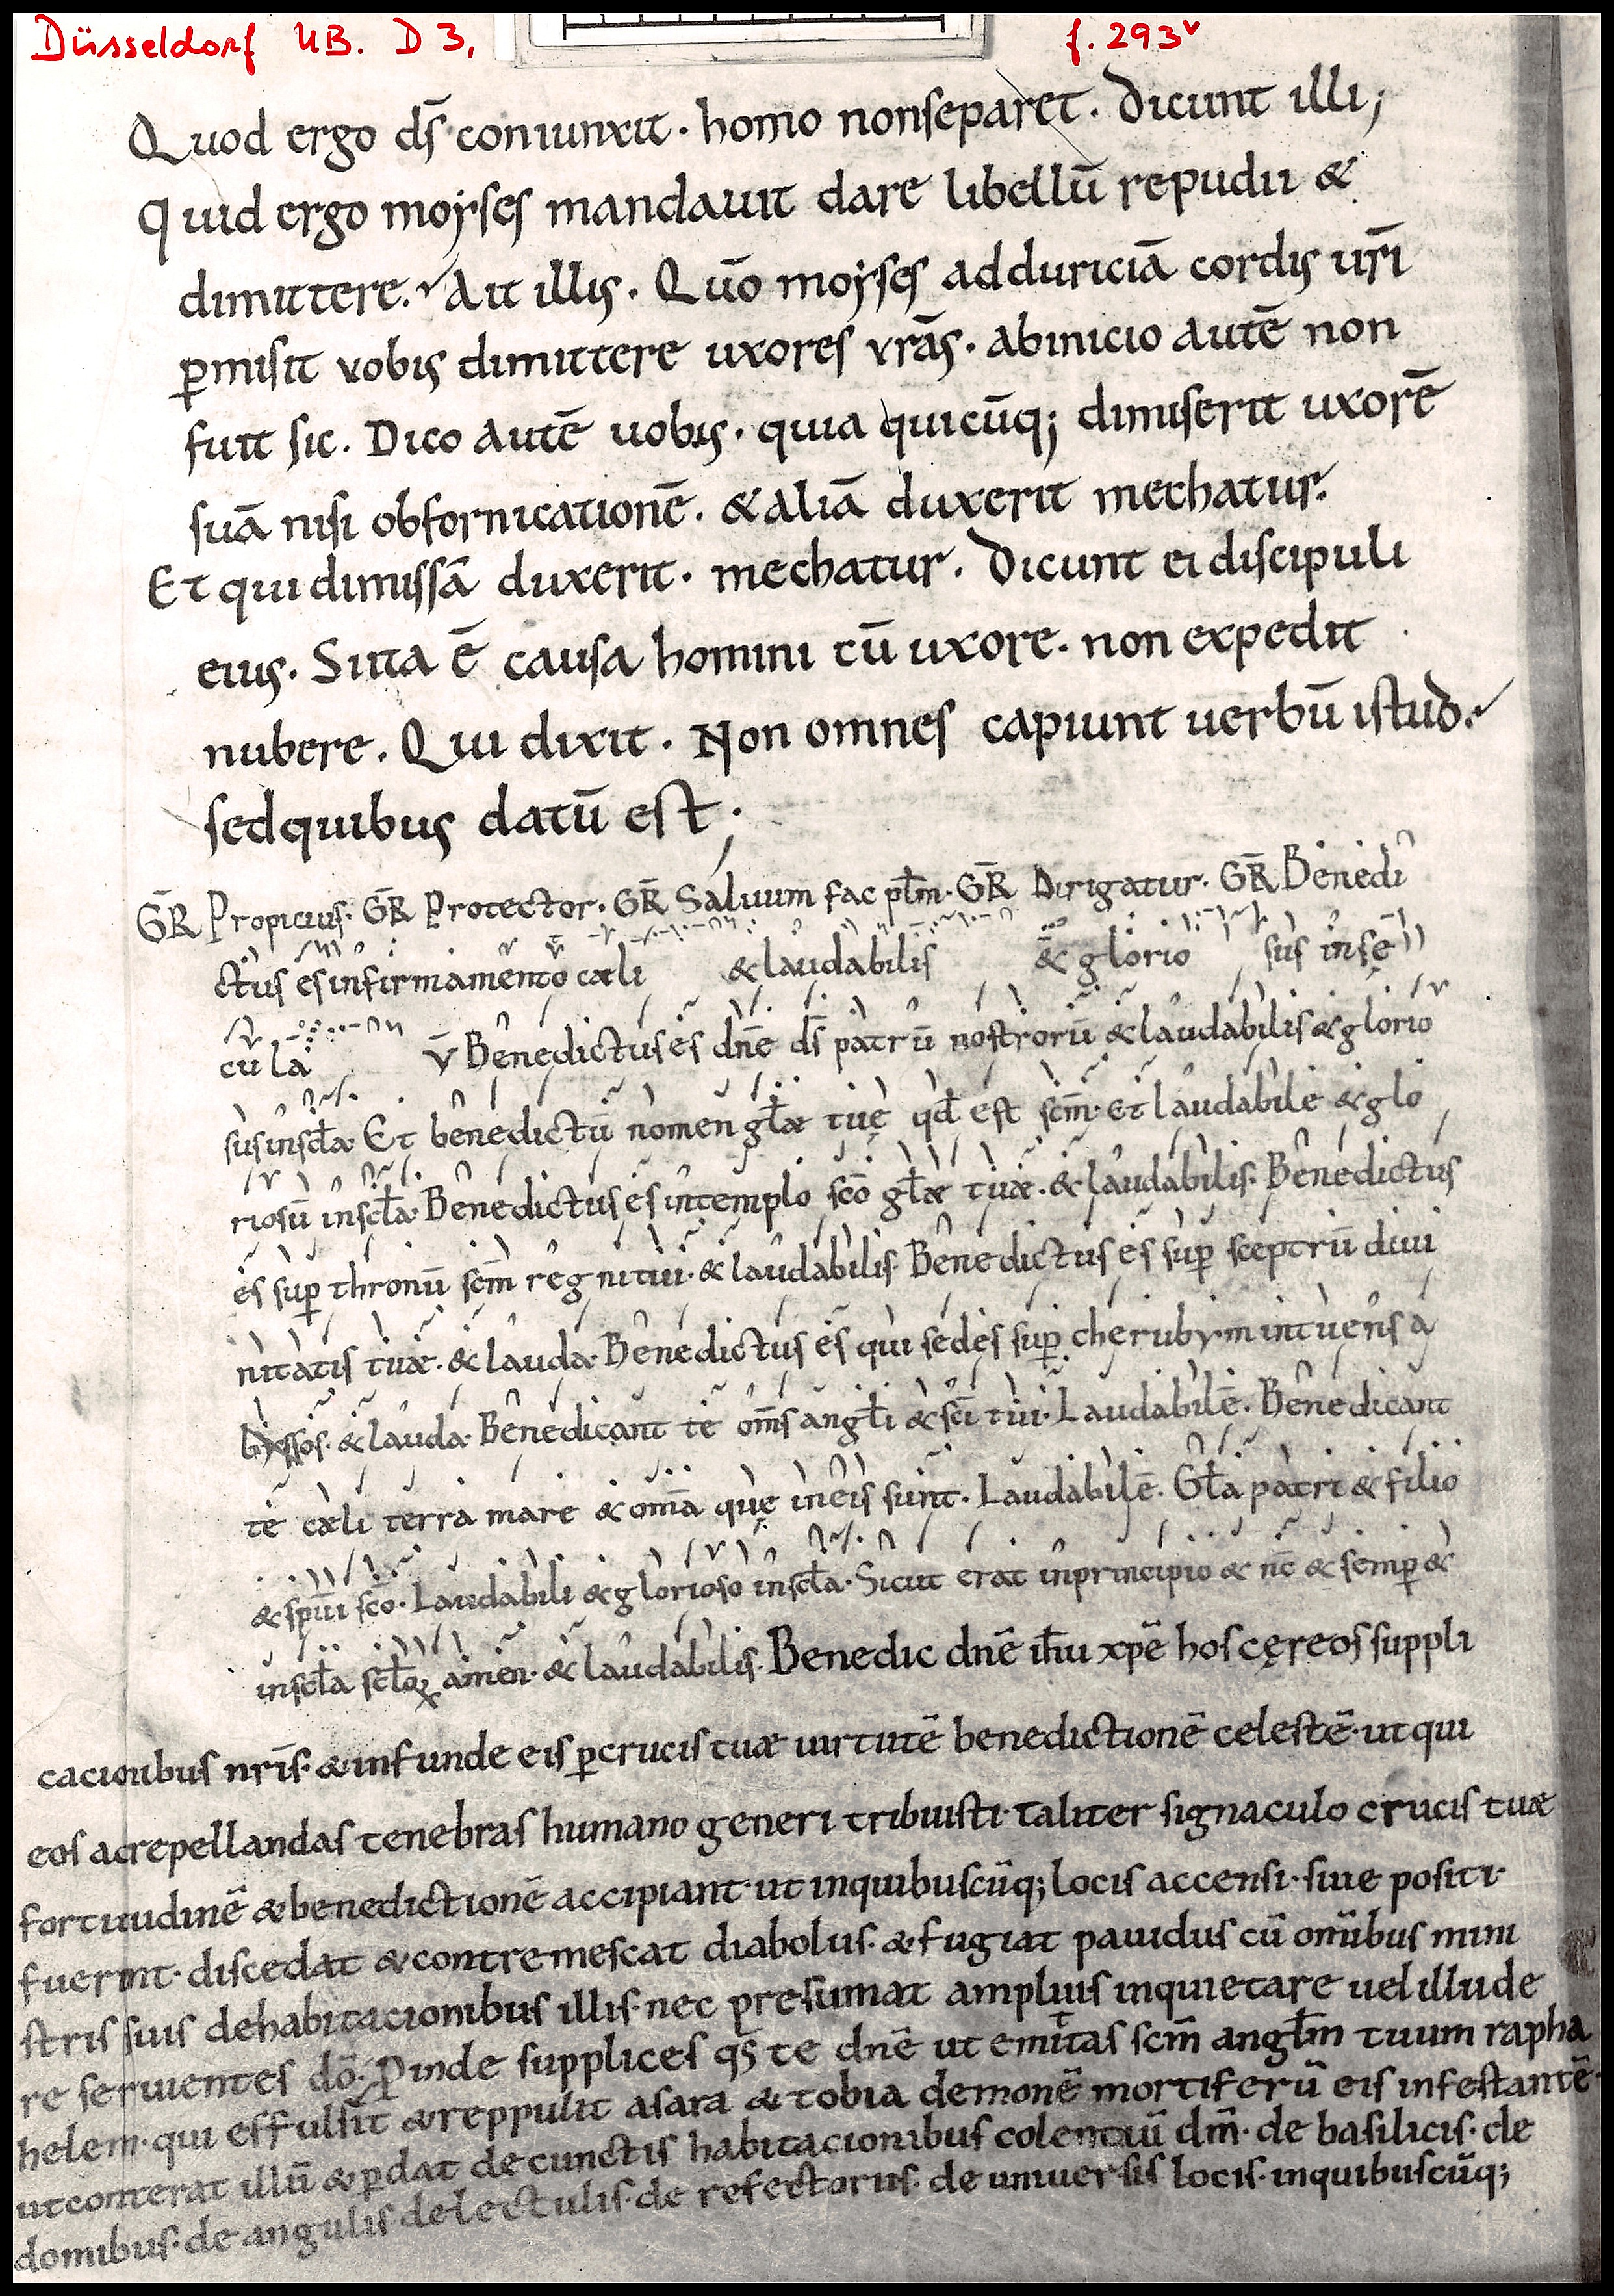 Düsseldorf UB. D 3, f. 293v
Quod ergo ds̄ coniunxit · homo nonseparet . Dicunt illi ;
Quid ergo moyses mandauit dare libellū repudii &
dimittere . Ait illis . Quō moyses adduriciā cordis ur̄i
ꝑmisit vobis dimittere uxores vrās · abinicio autē non
fuit sic . Dico autē uobis · quia quicūq; dimiserit uxorē
suā nisi obfornicationē . & aliā duxerit mechatur .
Et qui dimissā duxerit · mechatur . Dicunt ei discipuli
eius . Sita ē causa homini cū uxore . non expedit
nubere . Qui dixit . Non omnes capiunt uerbū istud .
sedquibus datū est ;
GR̄ Propicius · GR̄ Protector · GR̄ Saluum fac pl̄m · GR̄ Dirigatur · GR̄ Benedi
ctus es infirmamento cæli & laudabilis & glorio sus inse
cula v̄ Benedictus es dn̄e ds̄ patrū nostrorū & laudabilis & glorio
sus inscl̄a Et benedictū nomen gl̄æ tuę qd̄ est scm̄ · Et laudabile & glo
riosū inscl̄a · Benedictus es intemplo scō gl̄æ tuæ · & laudabilis · Benedictus
es suꝑ thronū scm̄ regni tui · & laudabilis Benedictus es suꝑ sceptrū diui
nitatis tuæ · & lauda · Benedictus es qui sedes suꝑ cherubym intuens a
byssos · & lauda · Benedicant te om̄s angl̄i & scī tui · Laudabilē . Benedicant
te cæli terra mare & om̄a quę ineis sunt · Laudabilē . Gl̄a patri & filio
& spūi scō · Laudabili & glorioso inscl̄a · Sicut erat inprincipio & nc̄ & semꝑ &
inscl̄a scl̄oꝝ amen · & laudabilis · Benedic dn̄e ih̄u xp̄e hos cęreos suppli
cacionibus nr̄is · & infunde eis ꝑcrucis tuæ uirtutē benedictionē celestē · ut qui
eos acrepellandas tenebras humano generi tribuisti · taliter signaculo crucis tuæ
fortitudinē & benedictionē accipiant · ut inquibuscūq; locis accensi · siue positi ·
fuerint · discedat & contremescat diabolus · & fugiat pauidus cū omībus mini
stris suis dehabitacionibus illis · nec presumat amplius inquietare uel illude
re seruientes dō · Proinde supplices qs te dn̄e ut emittas scm̄ angl̄m tuum rapha
helem · qui effulsit & reppulit asara & tobia demonē mortiferū eis infestantē ·
utconterat illū & ꝑdat de cunctis habitacionibus colentiū dm̄ · de basilicis · de
domibus · de angulis · delectulis · de refectoriis · de uniuersis locis · inquibuscūq;